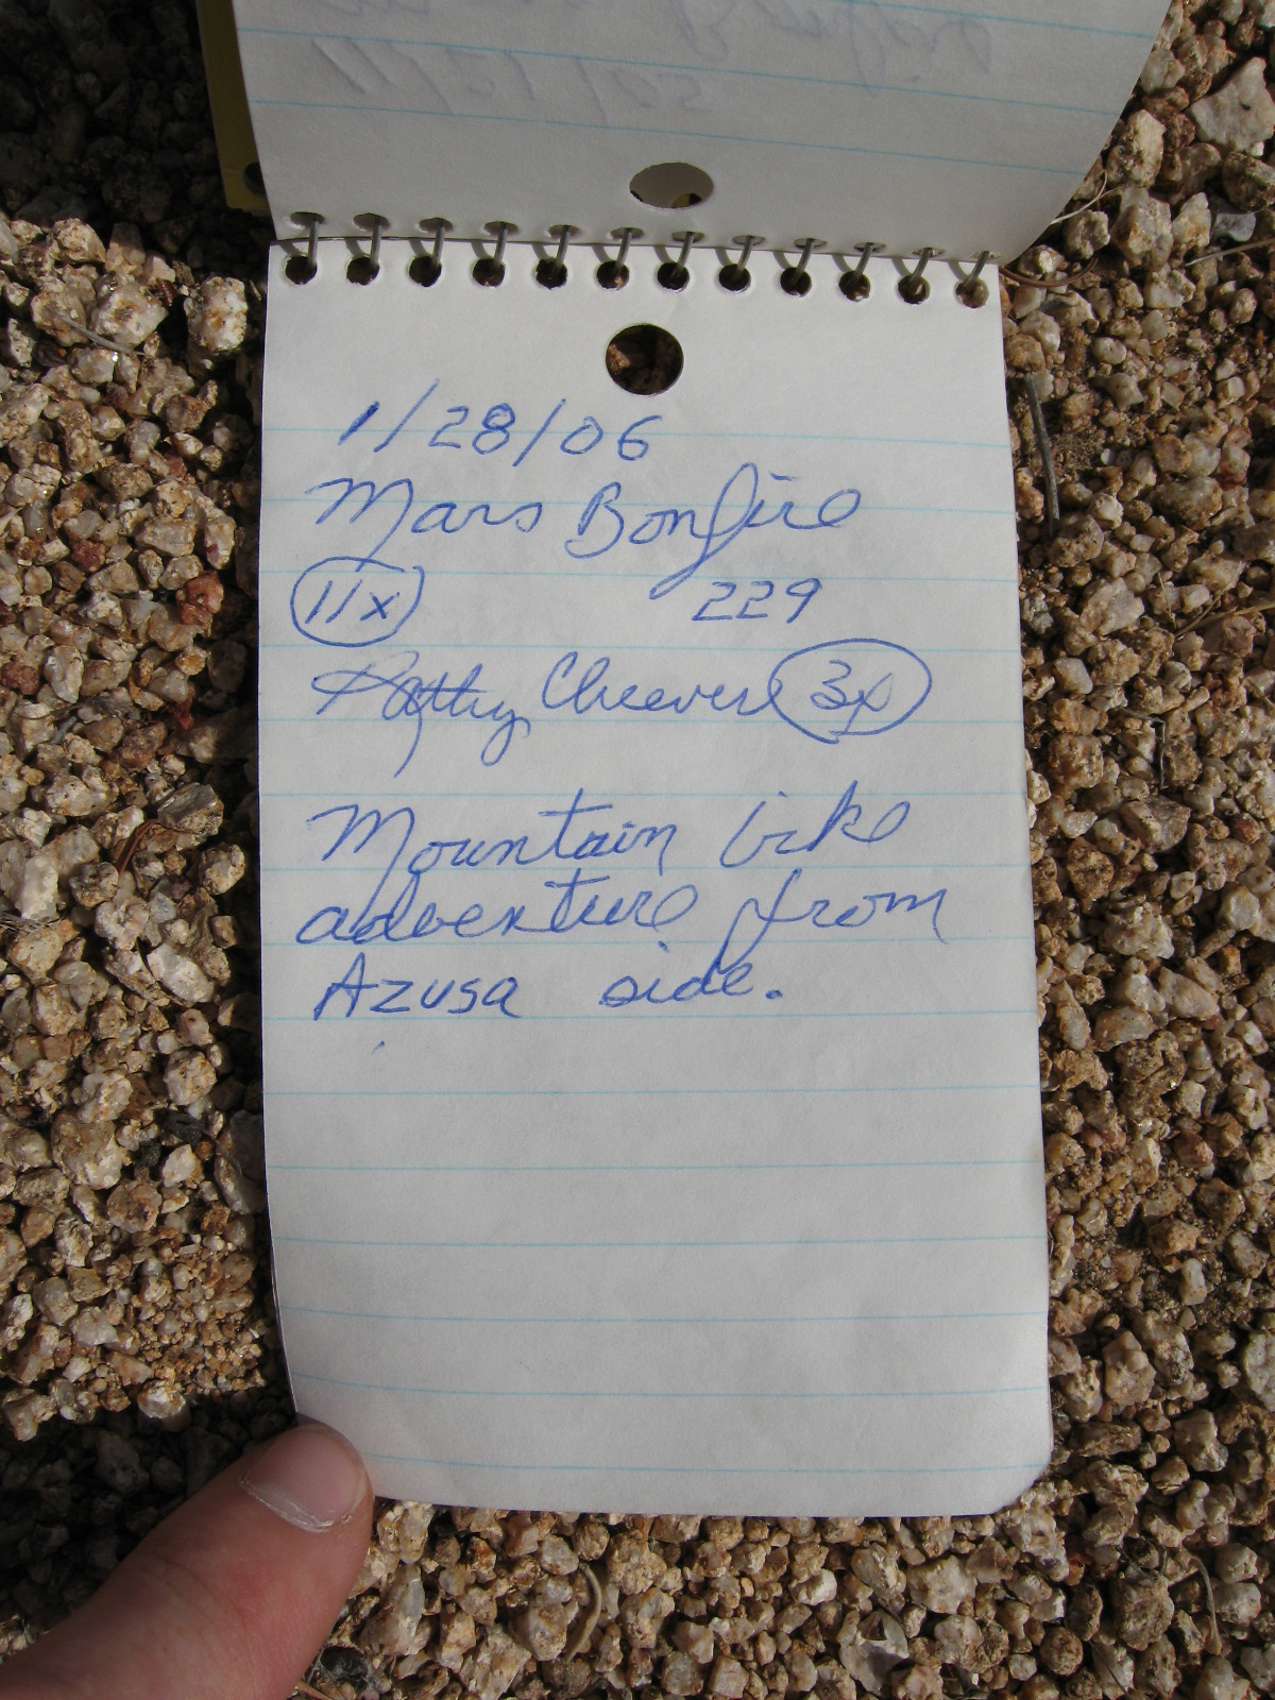 1/28/06
Mars Bonfire
11x 229
Kathy Cheever 3x
Mountain bike
adventure from
Azusa side.